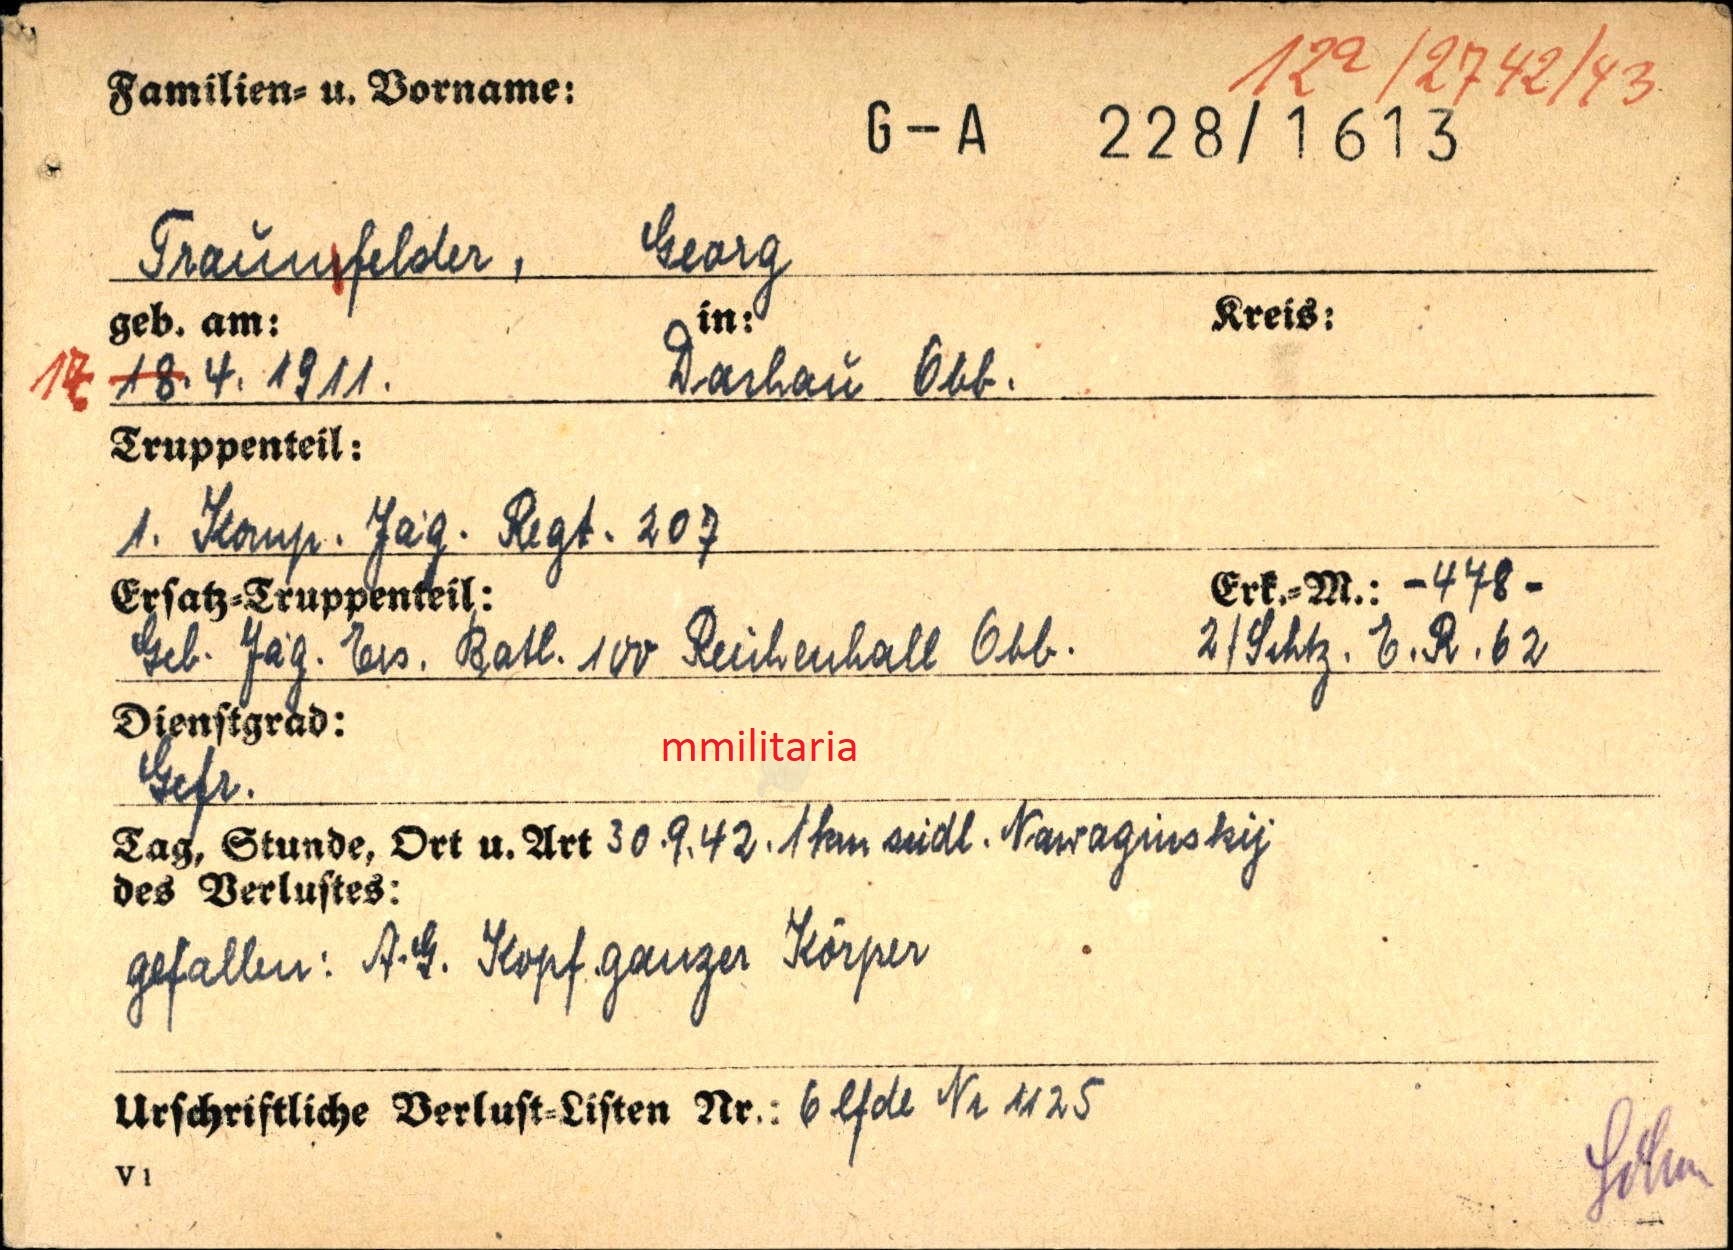 12a/2742/43
Familien- u. Vorname:
G-A 228/1613
Traunfelder, Georg
geb. am: in: Kreis:
17 18. 4. 1911. Dachau Obb.
Truppenteil:
1. Komp. Jäg. Regt. 207
Ersatz-Truppenteil: Erk.-M.: -478-
Geb. Jäg. Ers. Batl. 100 Reichenhall Obb. 2/Schtz. E. R. 62
Dienstgrad:
mmilitaria
Gefr.
Tag, Stunde, Ort u. Art 30.9.42. 1 km südl. Nawaginskij
des Verlustes:
gefallen: A.G. Kopf. ganzer Körper
Urschriftliche Verlust-Listen Nr.: 6 lfde Nr 1125
V 1